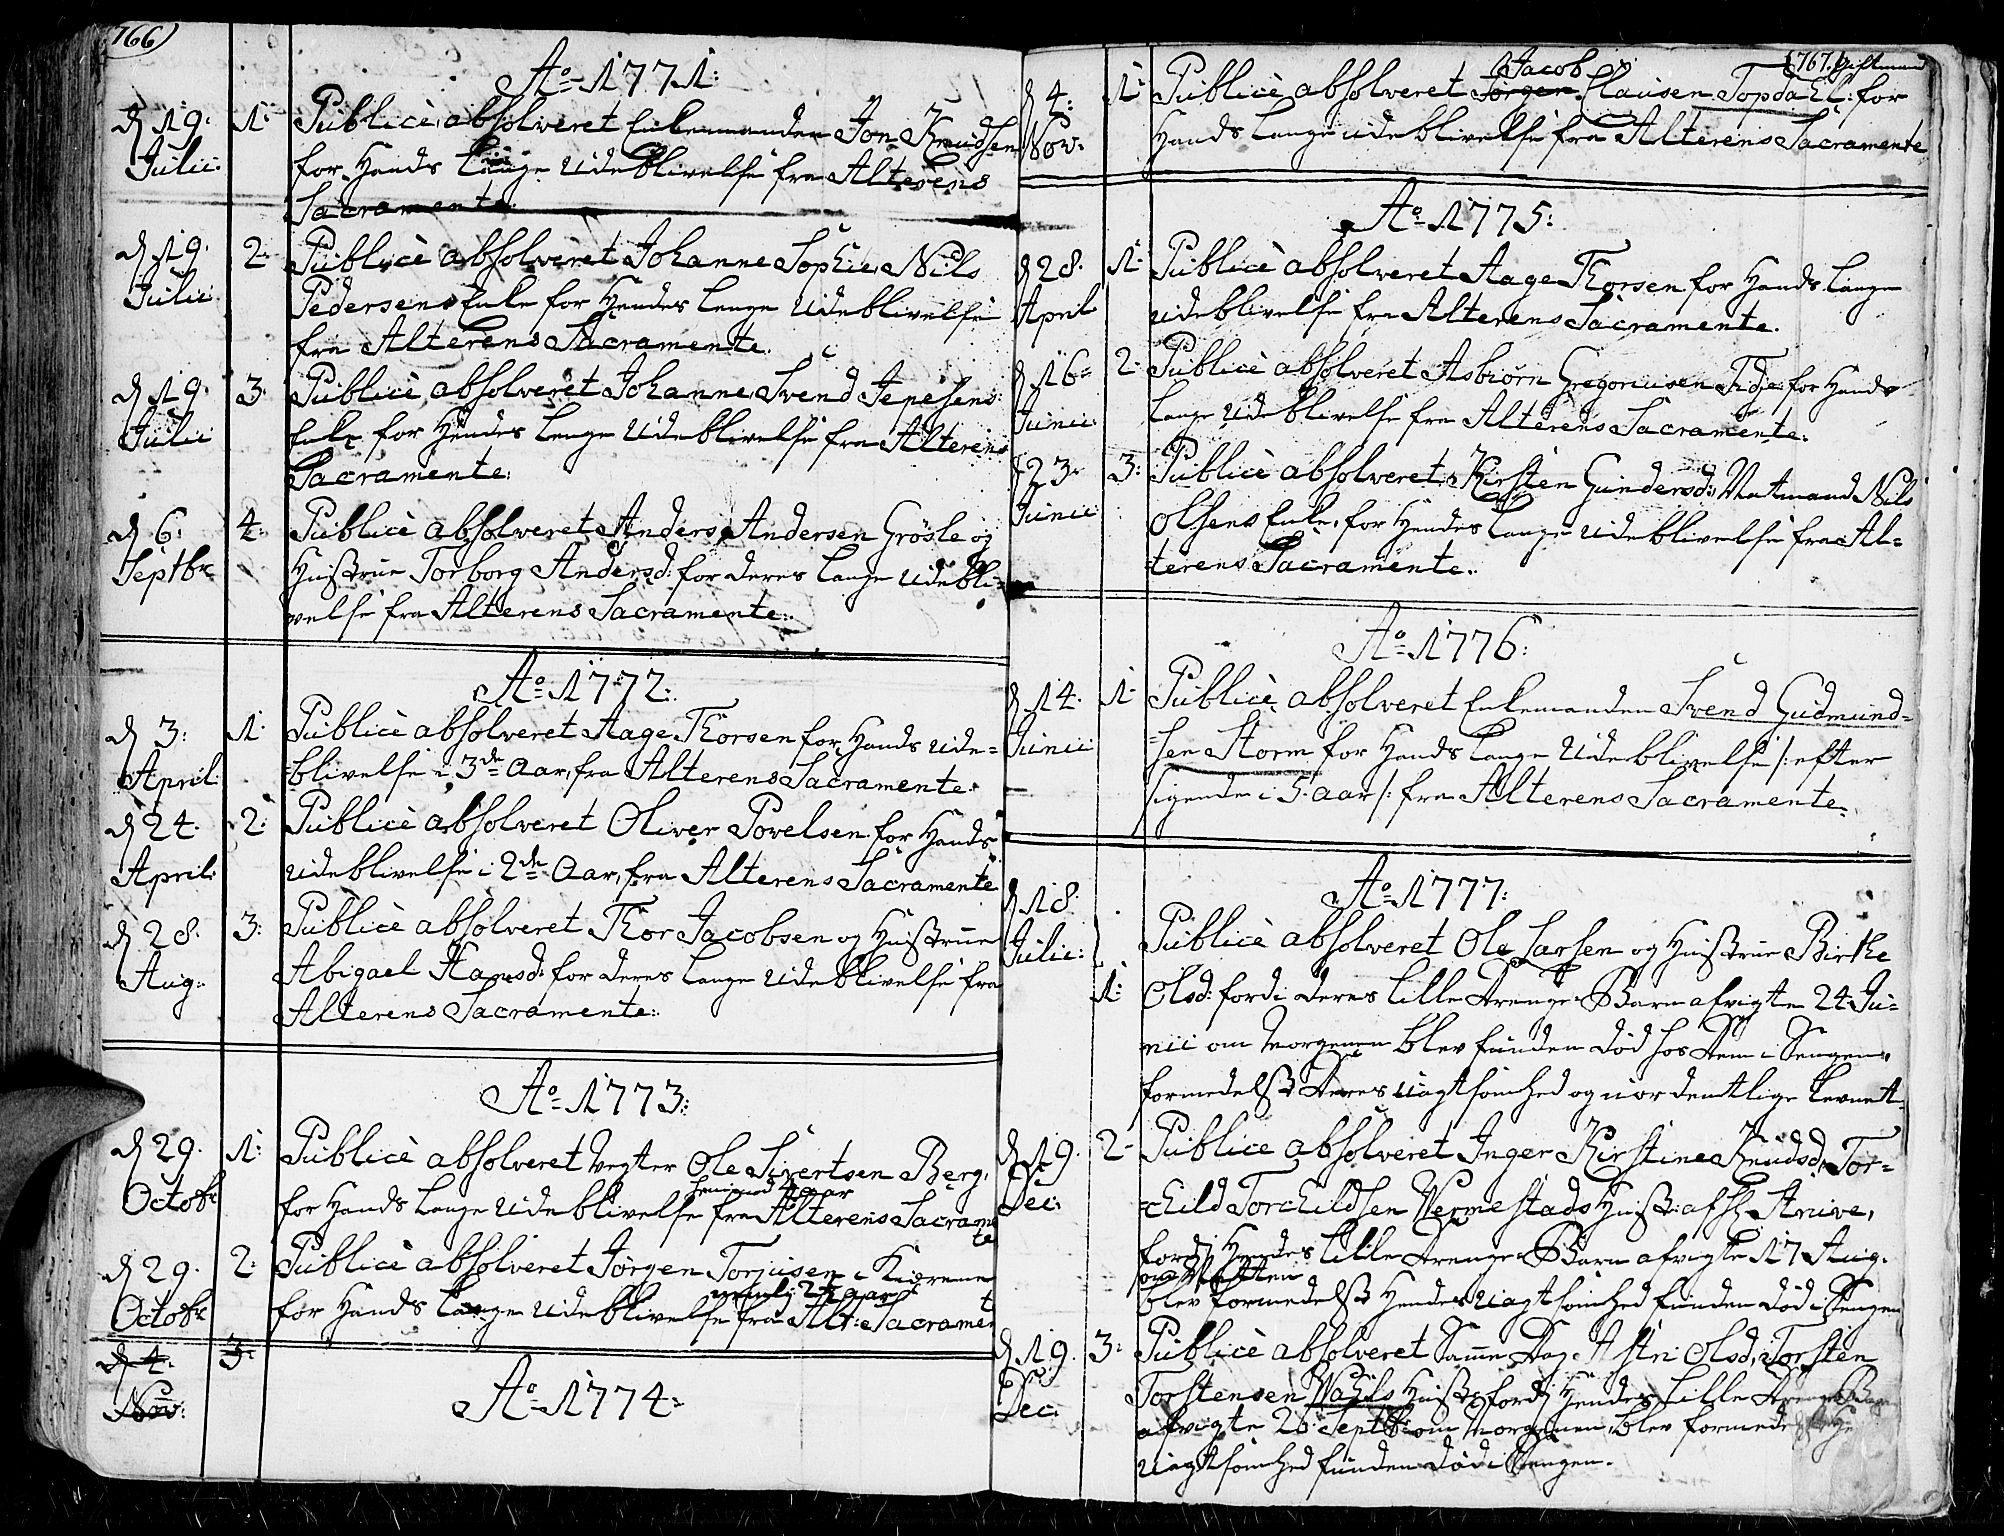 766)
Ao 1771:
d 19. 1: Publicè absolveret Enkemanden Jon Knudsen
Julii: for Hands lange Udeblivelse fra Alterens
Sacramente.
d 19. 2. Publicè absolveret Johanne Sophie, Nils
Julii Pedersens Enke for Hendes lange Udeblivelse
fra Alterens Sacramente.
d 19. 3. Publicè absolveret Johanne, Svend Jepesens
Julii Enke for Hendes lange Udeblivelse fra Alterens
Sacramente.
d 6. 4. Publicè absolveret Anders Andersen Grösle og
Septbr Hustrue Torborg Andersd: for deres lange Udebli-
velse fra Alterens Sacramente.
Ao 1772:
d 3. 1: Publicè absolveret Aage Thorsen for Hands ude-
April blivelse i 3de Aar, fra Alterens Sacramente.
d 24. 2: Publicè absolveret Oliver Povelsen for Hands
April: udeblivelse i 2de Aar, fra Alterens Sacramente
d 28. 3: Publicè absolveret Thor Jacobsen og Hustrue
Aug: Abigael Hansd: for deres lange Udeblivelse fra
Alterens Sacramente.
Ao 1773:
d 29. 1: Publicè absolveret Vegter Ole Sivertsen Berg,
Octobr for Hands lange Udeblivelse fra Alterens Sacrame
te
d 29. 2: Publicè absolveret Jörgen Torjusen i Kierene
nemlig 2 aar
Octobr for Hands lange Udeblivelse fra Alt: Sacrament
d 4. 3.
Nov:
Ao 1774.
(767. Giftmand
Jacob
d 4. 1: Publicè absolveret Jörgen Clausen Topdahl: for
Nov. Hands lange udeblivelse fra Alterens Sacramente
Ao 1775:
d 28. 1: Publicè absolveret Aage Thorsen for Hands lange
April udeblivelse fra Alterens Sacramente.
d 16. 2. Publicè absolveret Asbiörn Gregoriusen Tidje for Hands
Junii lange Udeblivelse fra Alterens Sacramente.
d 23. 3: Publicè absolveret Kirsten Gundersd: Matmand Nils
Junii Olsens Enke, for Hendes lange Udeblivelse fra Al-
terens Sacramente.
Ao 1776:
d 14. 1. Publicè absolveret Enkemanden Svend Gudmund-
Junii sen Storm for Hands lange Udeblivelse /: efter
sigende i 5. aar /: fra Alterens Sacramente.
Ao 1777:
d 18. Publicè absolveret Ole Larsen og Hustrue Birthe
Julii:
1: Olsd: fordi deres lille Drenge-Barn afvigte 24 Ju-
nii om Morgenen blev funden död hos dem i Sengen,
formedelst deres uagtsomhed og uordentlige levnet.
d 19. 2. Publicè absolveret Inger Kirstine Knudsd, Tor-
Dec: child Torchildsen Vermestads Hust:
fordj Hendes lille Drenge-Barn afvigte 17 Aug.
om Natten
blev formedelst Hendes uagtsomhed funden död i Sengen
d 19. 3: Publicè absolveret Samme Dag Astri Olsd, Torsten
Dec: Torstensen Wahls Hust: fordj Hendes lille Drenge Barn
afvigte 26 Septbr om Morgenen, blev formedelst
uagtsomhed funden död i Sengen.